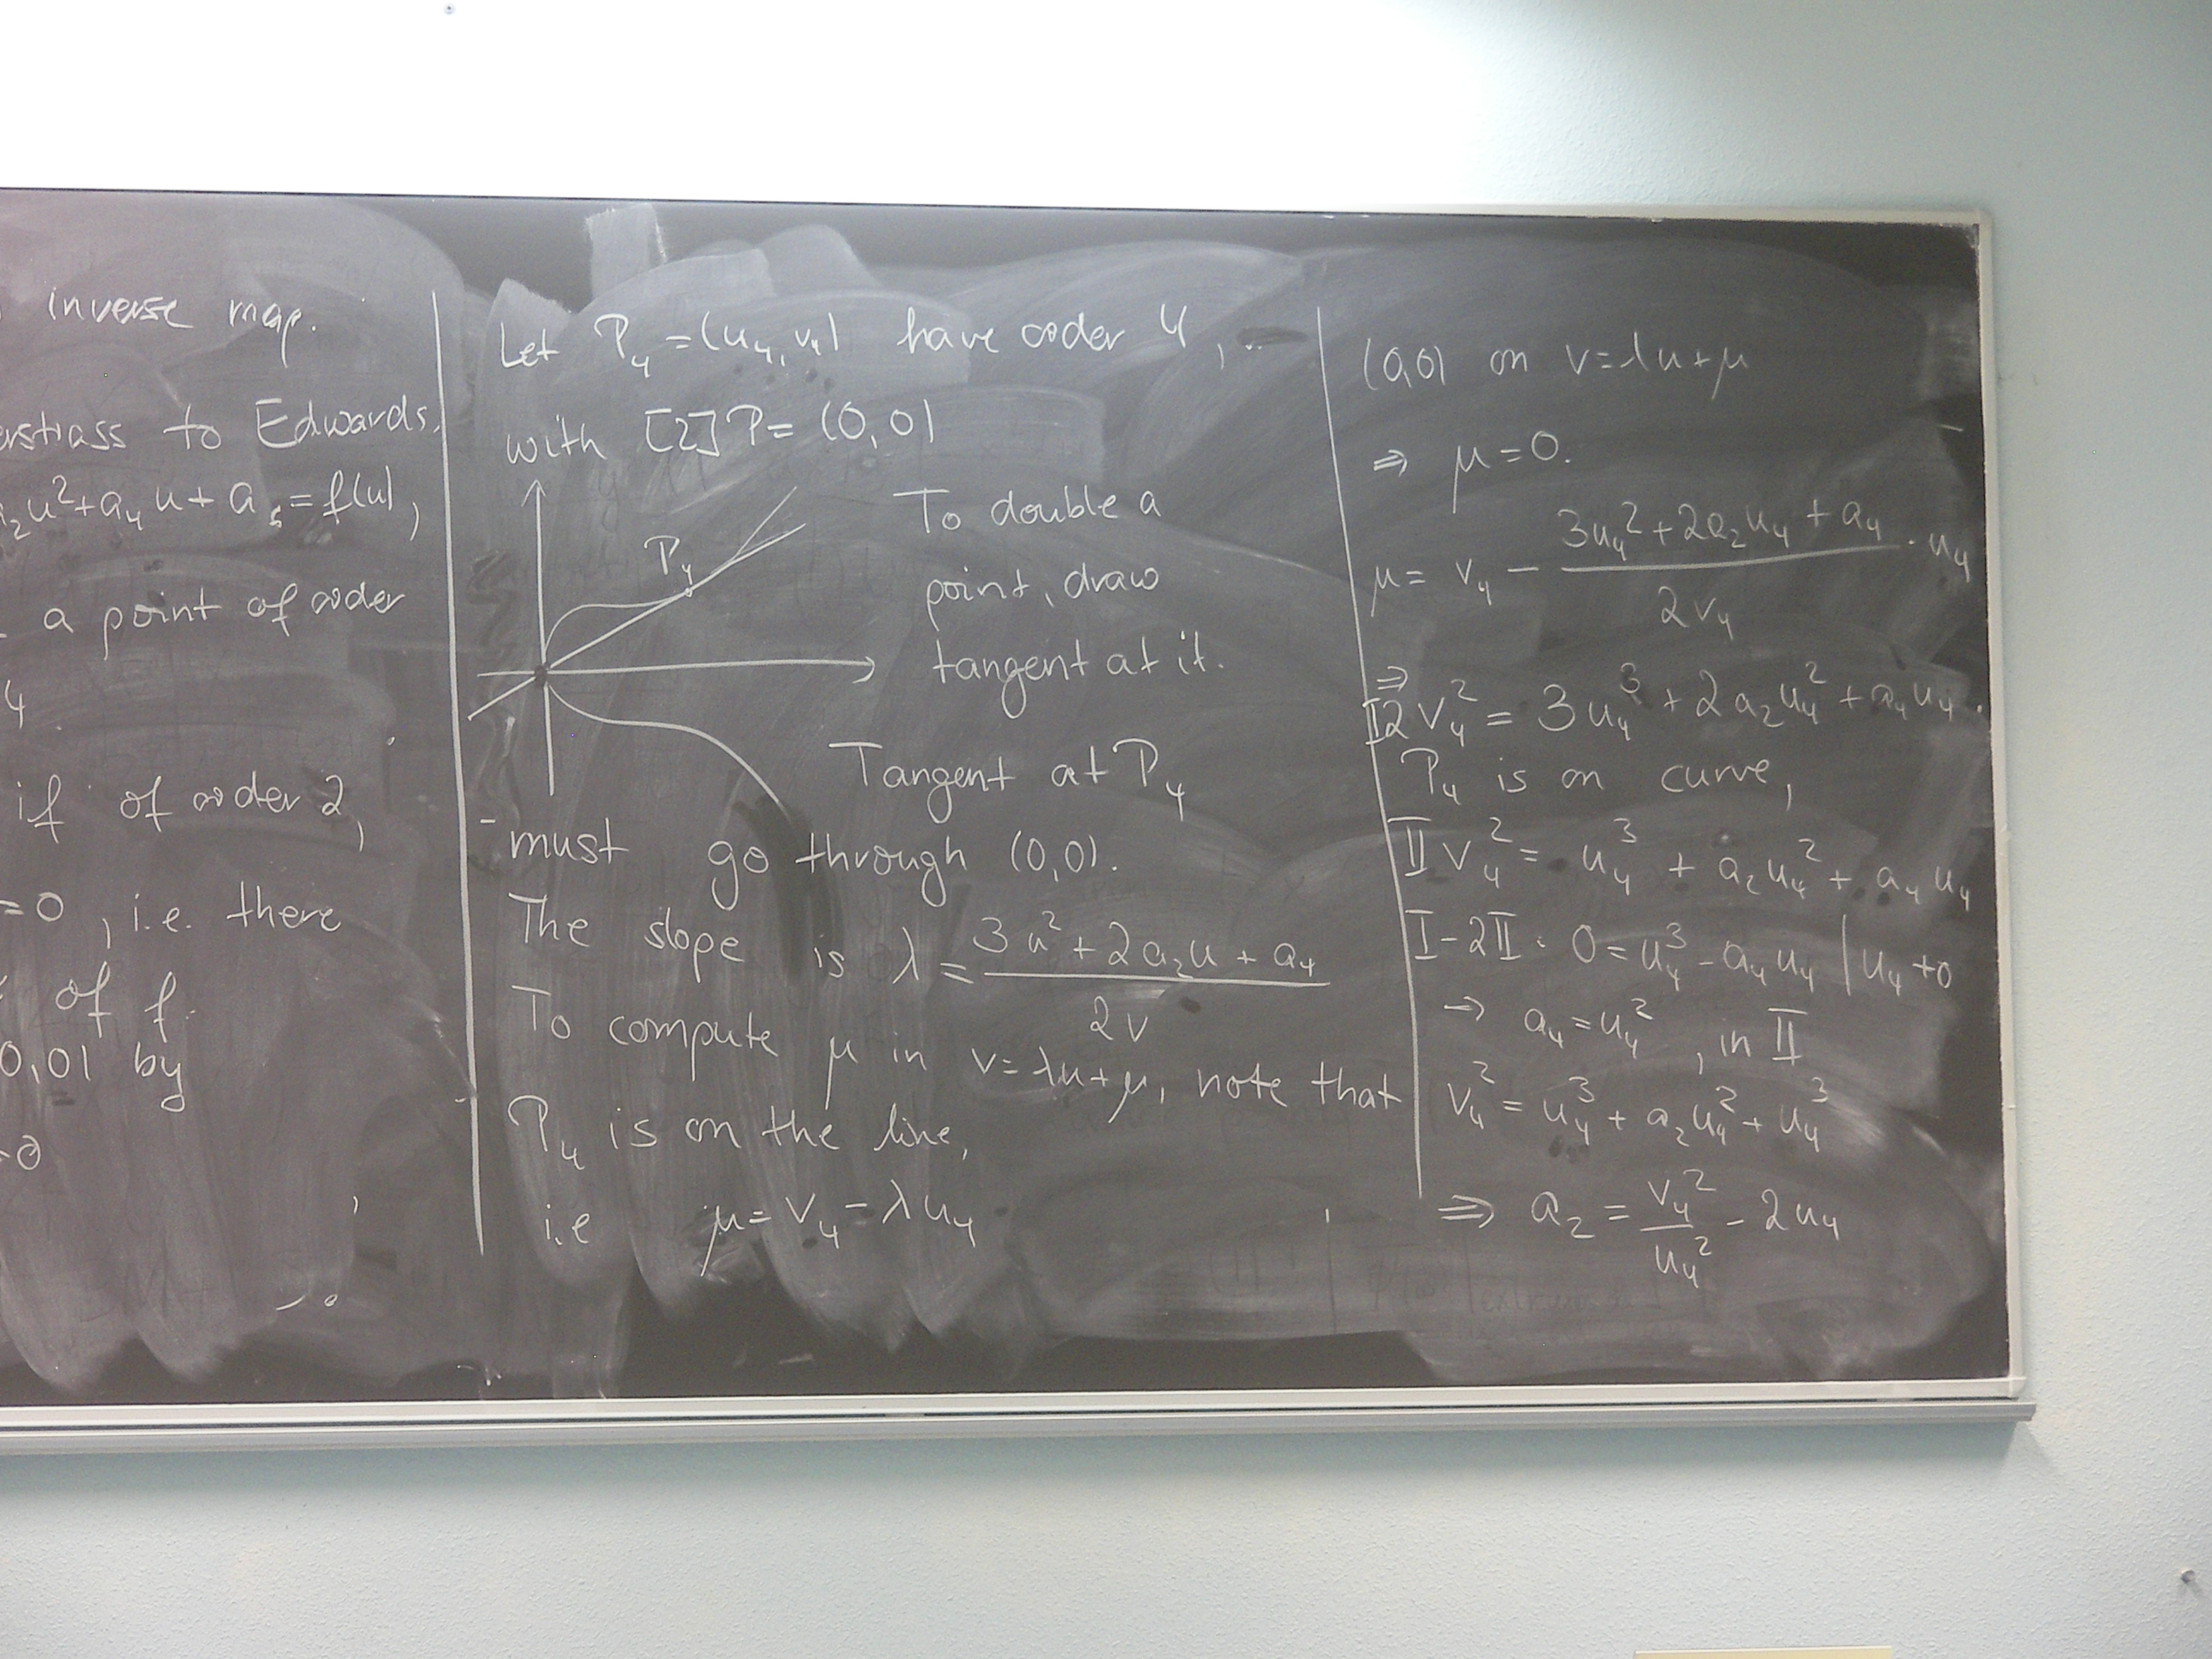 inverse map.
erstrass to Edwards.
a₂u²+a₄u+a₆=f(u),
a point of order
4.
if of order 2,
=0, i.e. there
of f.
0,0) by
Let P₄=(u₄,v₄) have order 4,
with [2]P=(0,0)
P₄
To double a
point, draw
tangent at it.
Tangent at P₄
must go through (0,0).
The slope is λ = (3u²+2a₂u+a₄)/(2v)
To compute μ in v=λu+μ, note that
P₄ is on the line,
i.e μ=v₄-λu₄
(0,0) on v=λu+μ
⇒ μ=0.
μ= v₄ - (3u₄²+2a₂u₄+a₄)/(2v₄) · u₄
⇒
I 2v₄² = 3u₄³+2a₂u₄²+a₄u₄.
P₄ is on curve,
II v₄² = u₄³ + a₂u₄² + a₄u₄
I-2II: 0=u₄³-a₄u₄ | u₄≠0
→ a₄=u₄², in II
v₄² = u₄³+a₂u₄²+u₄³
⇒ a₂ = v₄²/u₄² - 2u₄